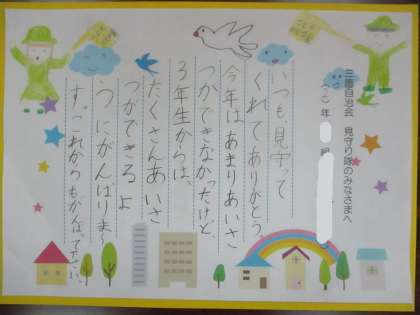 三唐自治会 見守り隊のみなさまへ
(2)年 組
いつも、見守って
くれてありがとう。
今年はあまりあいさ
つができなかったけど、
3年生からは、
たくさんあいさ
つができるよ
うにがんばりま
す。これからもがんばってください。